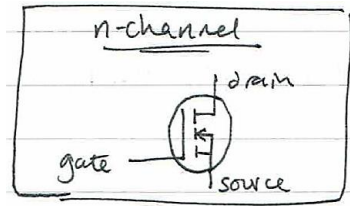 n-channel
drain
gate
source